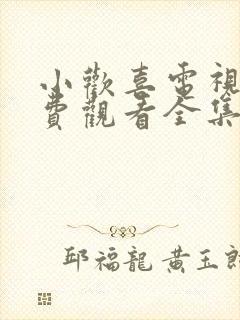 小歡喜電視
費觀看全集
邱福龍 黃玉郎